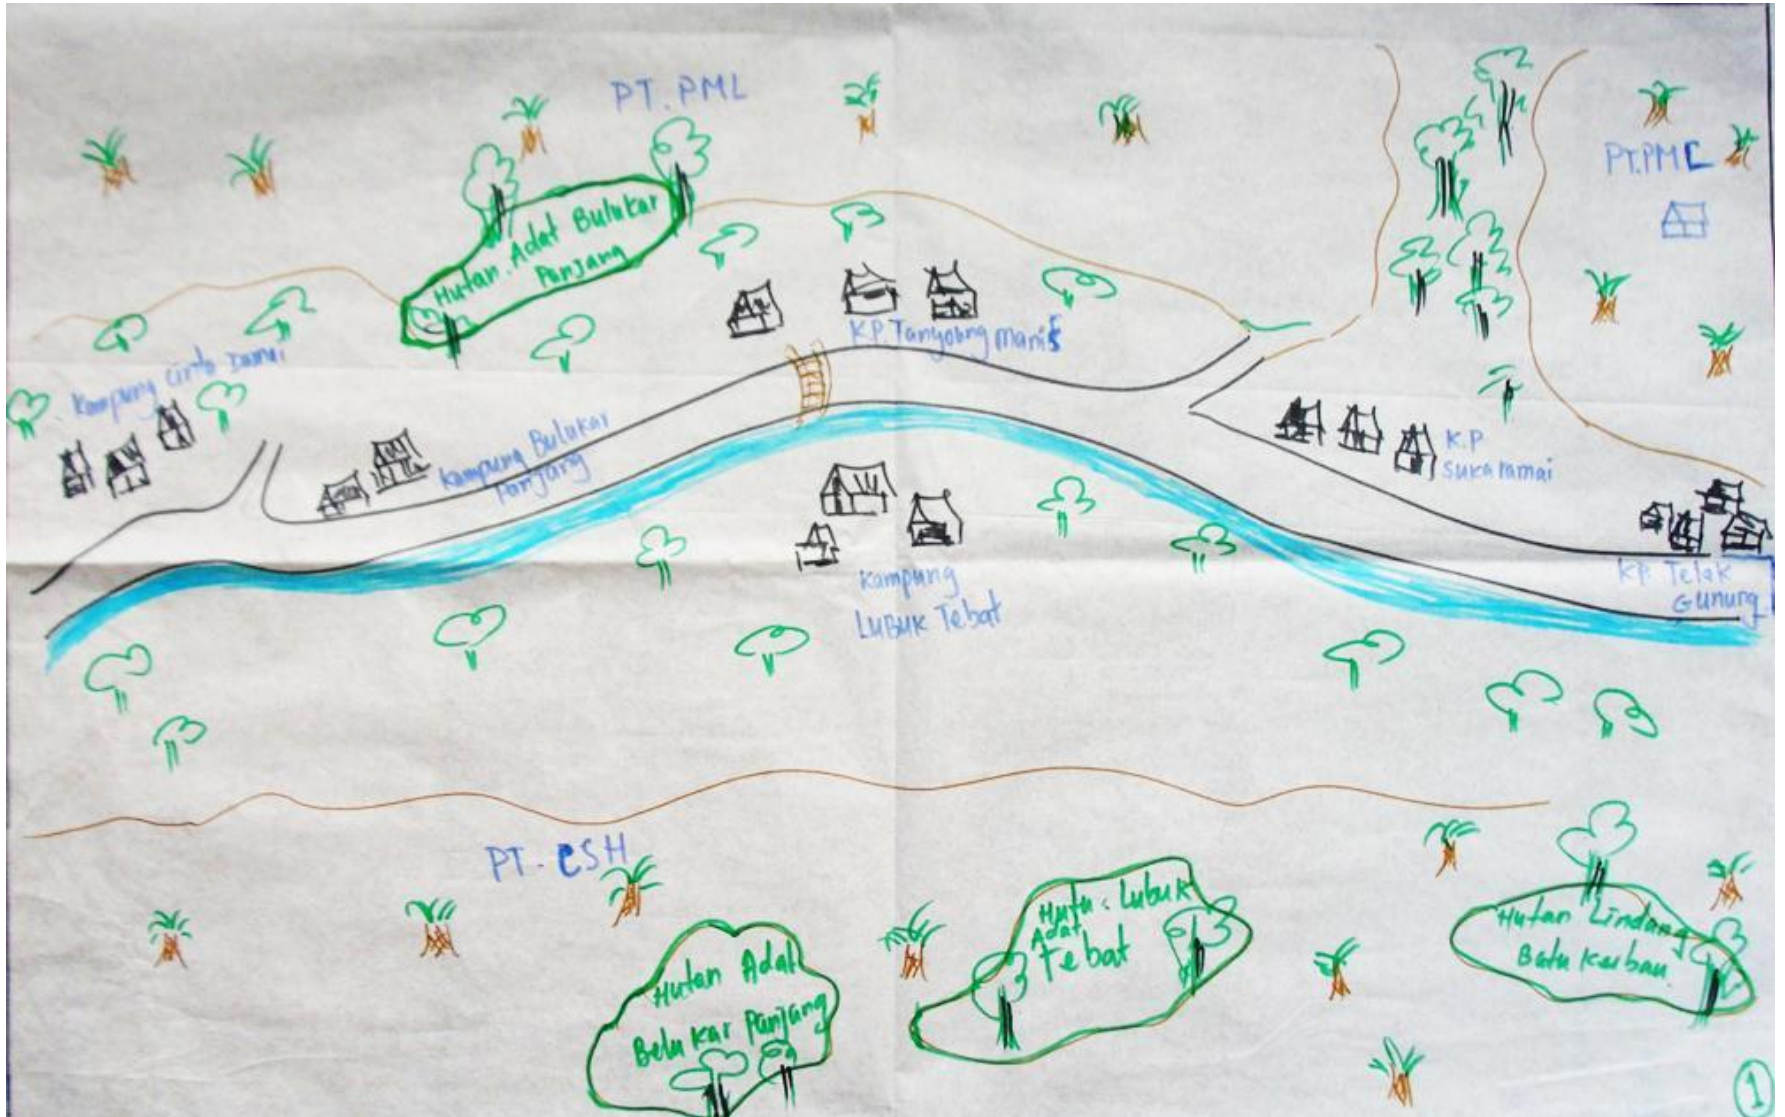 PT. PML
PT.PML
Hutan Adat Bulukar
Panjang
KP. Tanyoung manis
Kampung cinto Damai
Kampung Bulukar
Panjang
K.P
Sukaramai
Kampung
LUBUK Tebat
KP. Telak
Gunung
PT - CSH
Hutan Adat
Belukar Panjang
Huta. Lubuk
Adat
Tebat
Hutan Lindang
Batu Kerbau
1